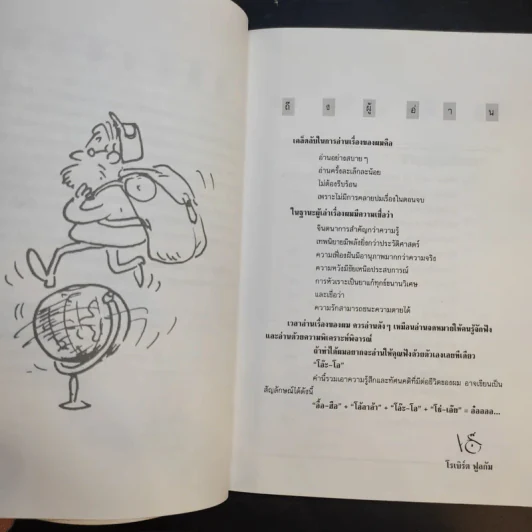 ถึ ง ผู้ อ่ า น
เคล็ดลับในการอ่านเรื่องของผมคือ
อ่านอย่างสบายๆ
อ่านครั้งละเล็กละน้อย
ไม่ต้องรีบร้อน
เพราะไม่มีการคลายปมเรื่องในตอนจบ
ในฐานะผู้เล่าเรื่องผมมีความเชื่อว่า
จินตนาการสำคัญกว่าความรู้
เทพนิยายมีพลังยิ่งกว่าประวัติศาสตร์
ความเพ้อฝันมีอานุภาพมากกว่าความจริง
ความหวังมีชัยเหนือประสบการณ์
การหัวเราะเป็นยาแก้ทุกข์ขนานวิเศษ
และเชื่อว่า
ความรักสามารถชนะความตายได้
เวลาอ่านเรื่องของผม ควรอ่านดังๆ เหมือนอ่านจดหมายให้คนรู้จักฟัง
และอ่านด้วยความพิเคราะห์พิจารณ์
ถ้าทำได้ผมอยากจะอ่านให้คุณฟังด้วยตัวเองเลยทีเดียว
"โอ๊ะ-โอ"
คำนี้รวมเอาความรู้สึกและทัศนคติที่มีต่อชีวิตของผม อาจเขียนเป็น
สัญลักษณ์ได้ดังนี้
+ "โอ้ลาล้า" + "โอ๊ะ-โอ" +
โรเบิร์ต ฟูลกัม